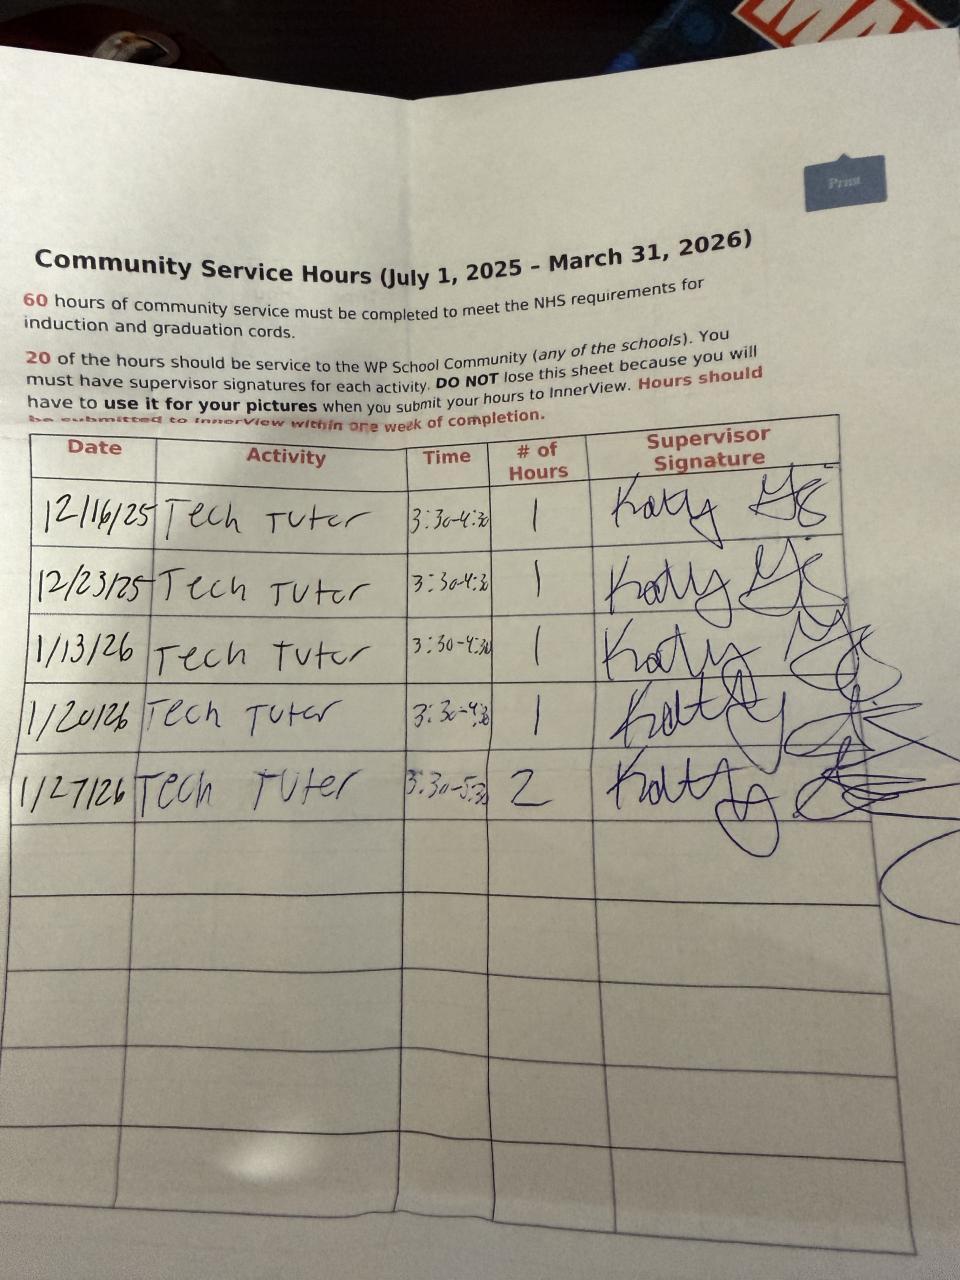 MA
Print
Community Service Hours (July 1, 2025 – March 31, 2026)
60 hours of community service must be completed to meet the NHS requirements for
induction and graduation cords.
20 of the hours should be service to the WP School Community (any of the schools). You
must have supervisor signatures for each activity. DO NOT lose this sheet because you will
have to use it for your pictures when you submit your hours to InnerView. Hours should
be submitted to InnerView within one week of completion.
Date Activity Time # of Hours Supervisor Signature
12/16/25 Tech Tutor 3:30-4:30 1 Katy
12/23/25 Tech Tutor 3:30-4:30 1 Katy
1/13/26 Tech Tutor 3:30-4:30 1 Katy
1/20/26 Tech Tutor 3:30-4:30 1 Katy
1/27/26 Tech Tuter 3:30-5:30 2 Katy